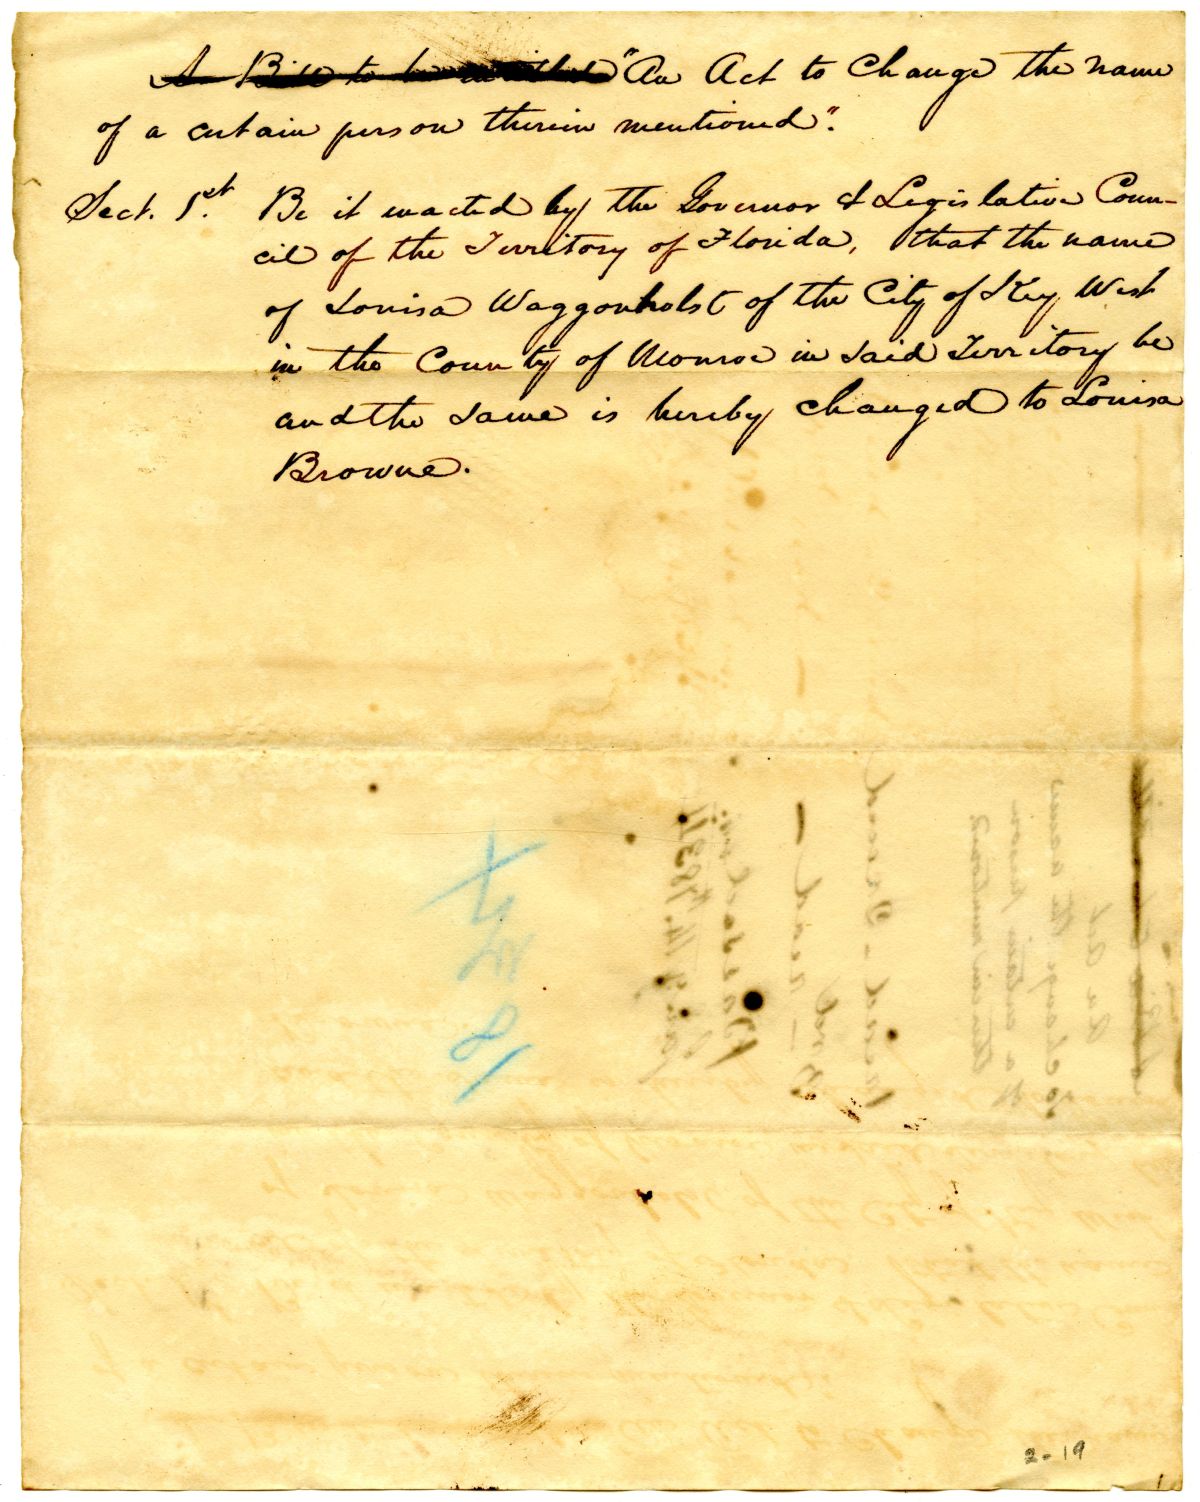 A Bill to be entitled "An Act to Change the name
of a certain person therein mentioned".
Sect. 1st. Be it enacted by the Governor & Legislative Coun-
cil of the Territory of Florida, that the name
of Louisa Waggonholst of the City of Key West
in the County of Monroe in said Territory be
and the same is hereby changed to Louisa
Browne.
2-19